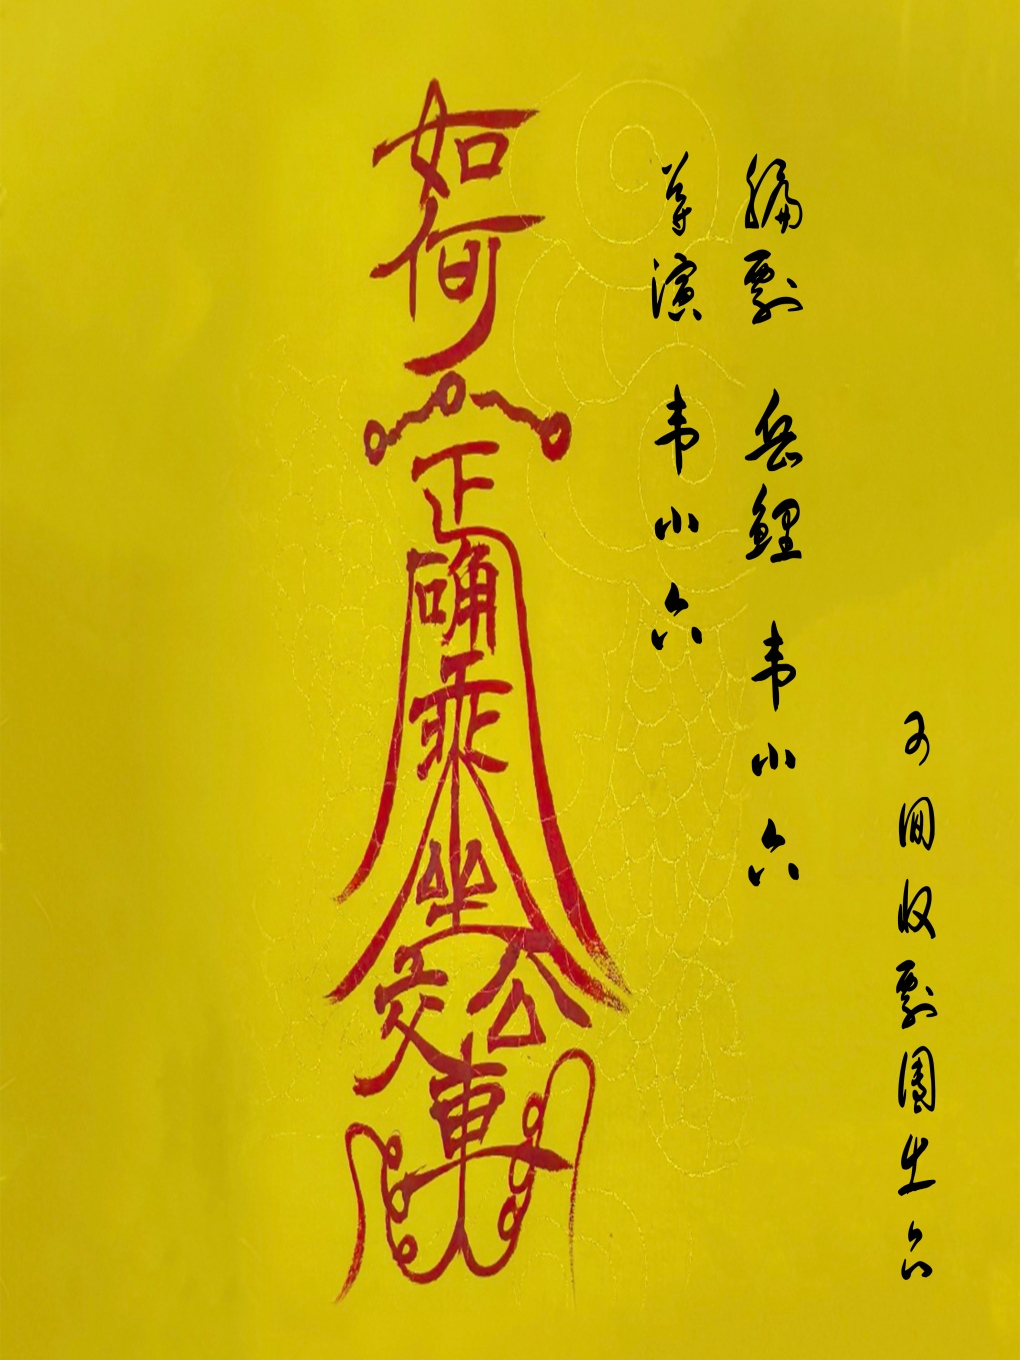 可回收劇團出品
編劇 岳鯉 韦小六
導演 韦小六
如何正確乘坐公交車